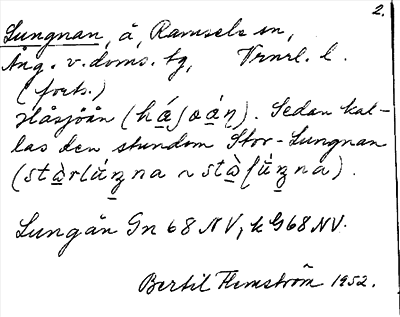 2.
Lungnan, å, Ramsele sn,
Ång. v. doms. tg, Vrnrl. l.
(forts.)
Håsjöån (há̱ʃoá̱n̥). Sedan kal-
las den stundom Stor-Lungnan
Lungån Gn 68 NV, k G68 NV.
Bertil Flemström 1952.